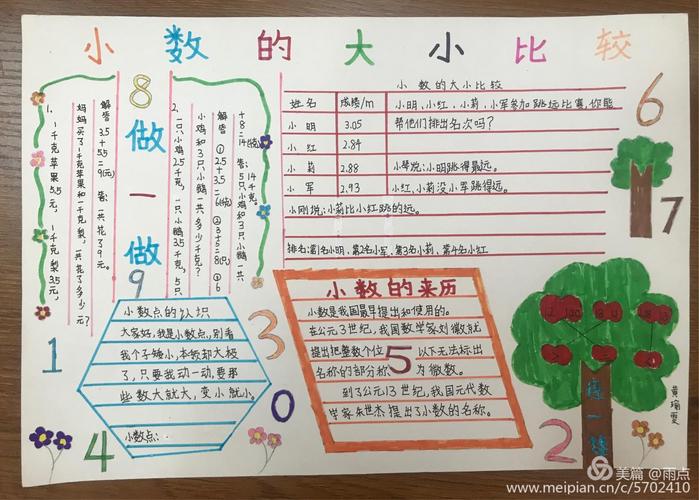 小数的大小比较
8
做一做
9
1、1千克苹果5.5元，1千克梨3.5元，
妈妈买了1千克苹果和1千克梨，一共花了多少元？
解答 3.5+5.5=9(元) 答：一共花了9元。
2、一只小鸡2.5千克，一只小鹅3.5千克，5只
小鸡和3只小鹅一共多少千克？
解答
小数的大小比较
姓名 成绩/m
小明 3.05
小红 2.84
小莉 2.88
小军 2.93
小明、小红、小莉、小军参加跳远比赛，你能
帮他们排出名次吗？
小琴说：小明跳得最远。
小红、小莉没小军跳得远。
小刚说：小莉比小红跳的远。
排名：第1名小明、第2名小军、第3名小莉、第4名小红
6
7
小数点的认识
大家好，我是小数点，别看
我个子矮小，本领却大极
了，只要我动一动，要那
些数大就大，变小就小。
小数点：
1
4
3
0
小数的来历
小数是我国最早提出和使用的。
在公元3世纪，我国数学家刘徽就
提出把整数个位5以下无法标出
名称的部分称为微数。
到了公元13世纪，我国元代数
学家朱世杰提出了小数的名称。
2
黄瑜雯
美篇 @雨点
www.meipian.cn/c/5702410